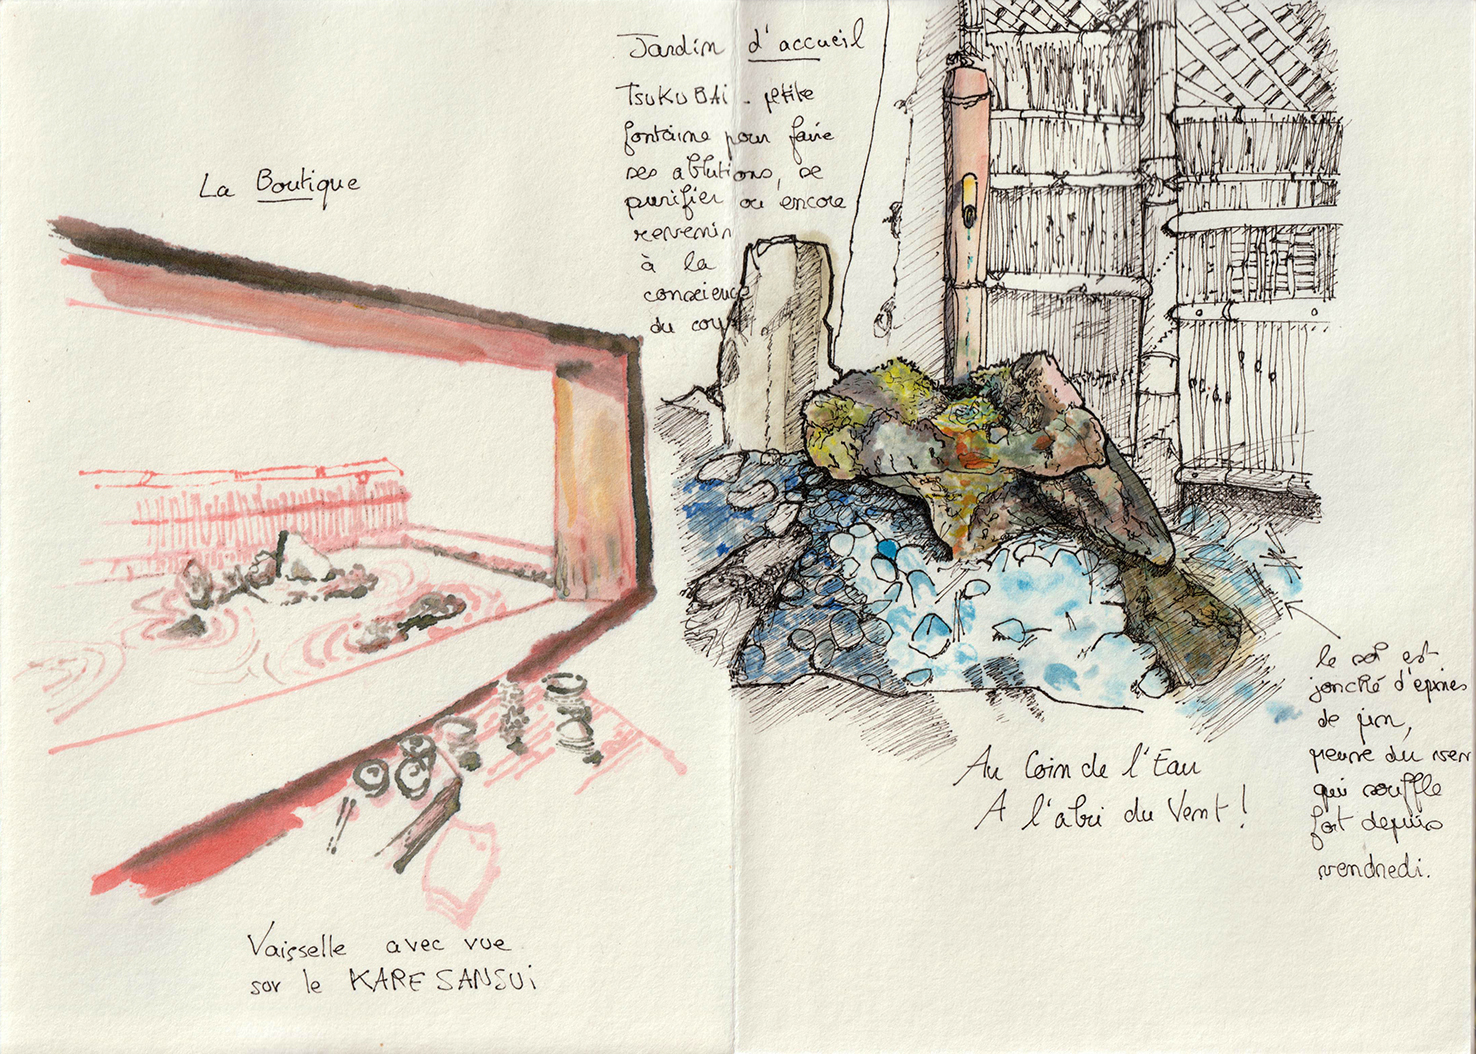 La Boutique
Vaisselle avec vue
sur le KARE SANSUI
Jardin d'accueil
TSUKUBAI - petite
fontaine pour faire
ses ablutions, se
purifier ou encore
revenir
à la
conscience
du corps
Au Coin de l'Eau
A l'abri du Vent !
le sol est
jonché d'épines
de pin,
preuve du ven
qui souffle
fort depuis
vendredi.